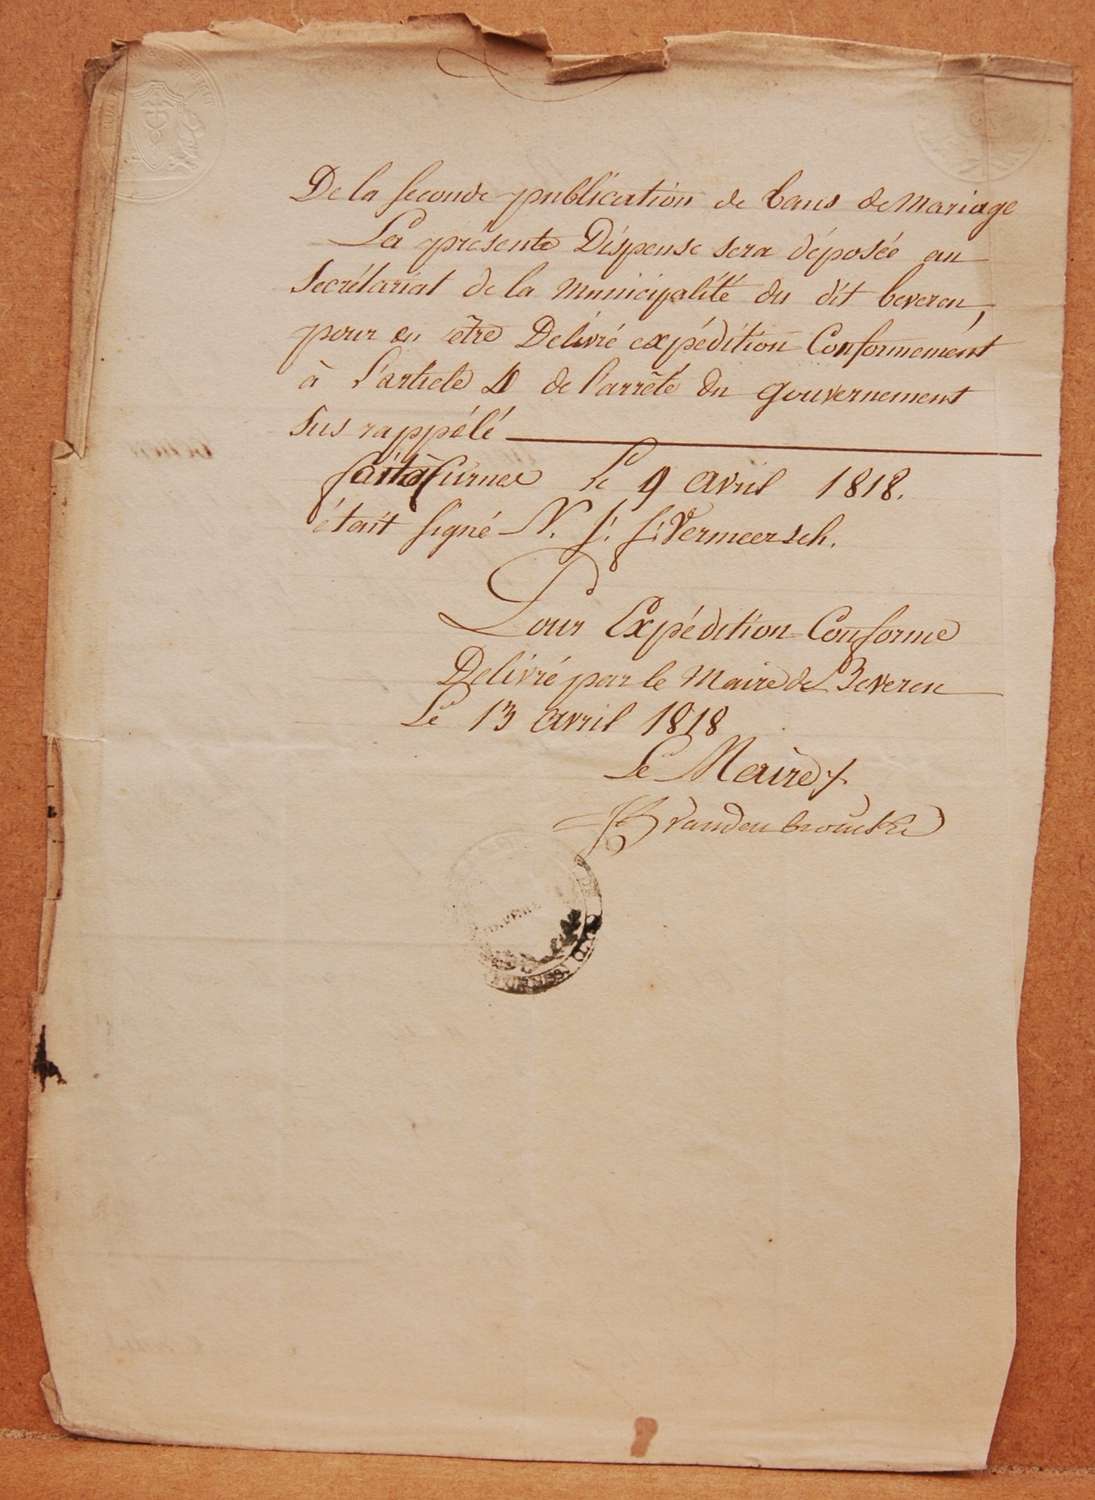 De la seconde publication de bans de Mariage
La présente Dispense sera déposée au
Secrétariat de la Municipalité du dit beveren,
pour en être Delivré expédition Conformement
à l'article 4 de l'arrêté du gouvernement
Sus rappélé
fait à furnes Le 9 avril 1818.
était signé N. J. f: Vermeersch.
Pour Expédition Conforme
Delivré par le Maire de Beveren
Le 13 avril 1818
Le Maire
vandenbroucke
FURNES